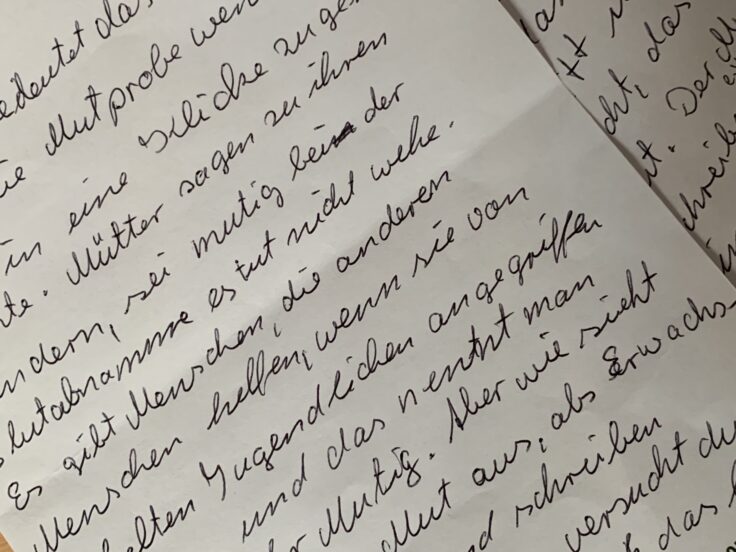 bedeutet das
Mutprobe wen
in eine Klicke zu ge
te. Mütter sagen zu ihren
ndern, sei mutig bein der
lutabnamme es tut nicht wehe.
Es gibt Menschen, die anderen
Menschen helfen, wenn sie von
Jugendlichen angegriffen
und das nennt man
Mutig. Aber wie sieht
Mut aus, als Erwachs-
d schreiben
versucht du
das
das
cht, das
t. Der M
chreibe